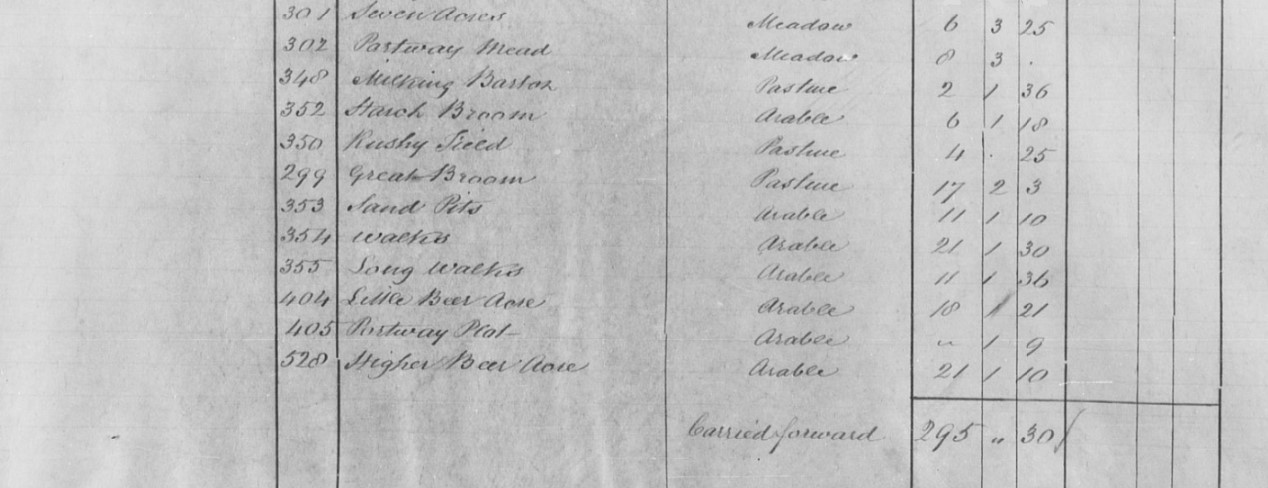 301 Seven Acres Meadow 6 3 25
302 Partway Mead Meadow 8 3 .
348 Milking Barton Pasture 2 1 36
352 Starch Broom Arable 6 1 18
350 Rushy Field Pasture 4 . 25
299 Great Broom Pasture 17 2 3
353 Sand Pits Arable 11 1 10
354 Walks Arable 21 1 30
355 Long Walks Arable 11 1 36
404 Little Beer Acre Arable 18 1 21
405 Portway Plat Arable " 1 9
528 Higher Beer Acre Arable 21 1 10
Carried forward 295 " 30